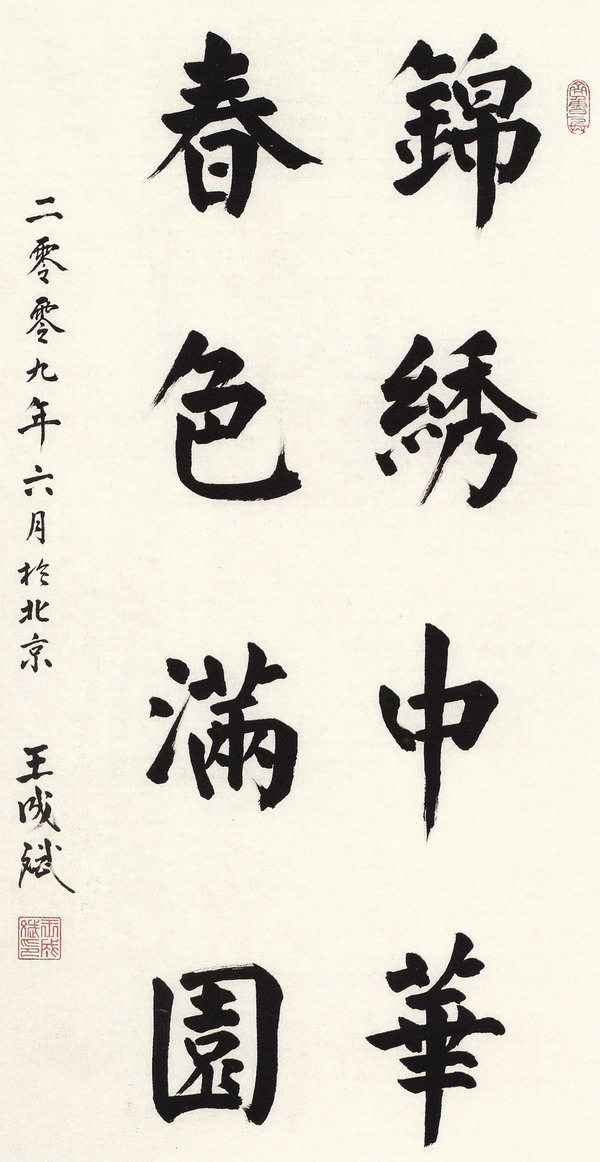 錦綉中華
春色滿園
二零零九年六月於北京 王成斌